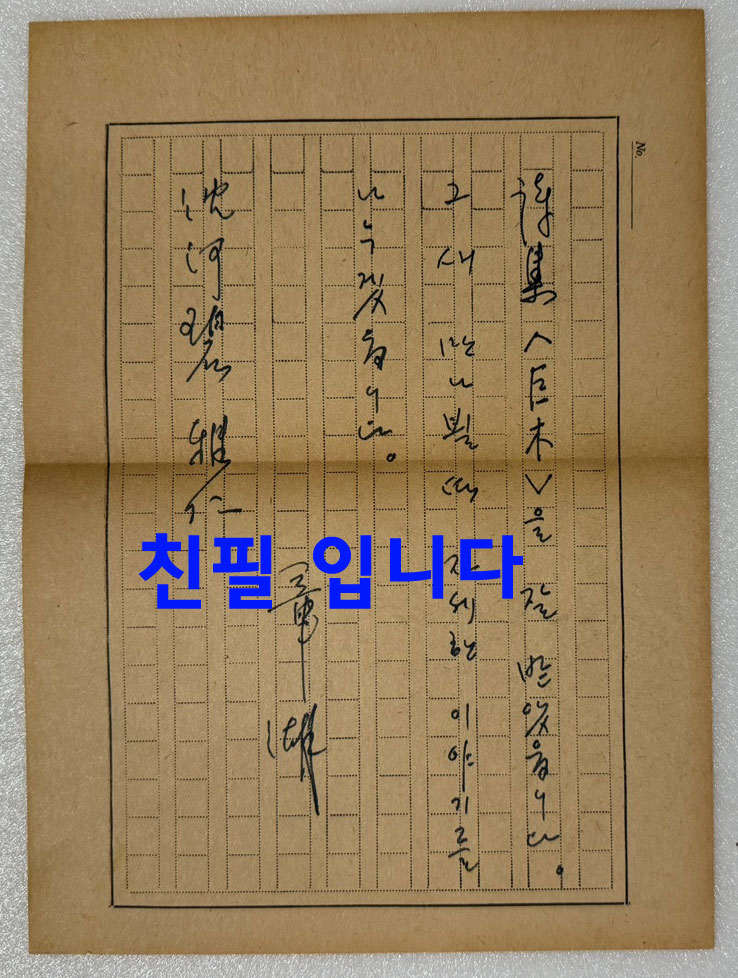 No
詩集〈巨木〉을 잘 받았읍니다。
그새 만나뵐때 자세한 이야기를
나누겠읍니다。
沈河碧 雅仁
친필 입니다